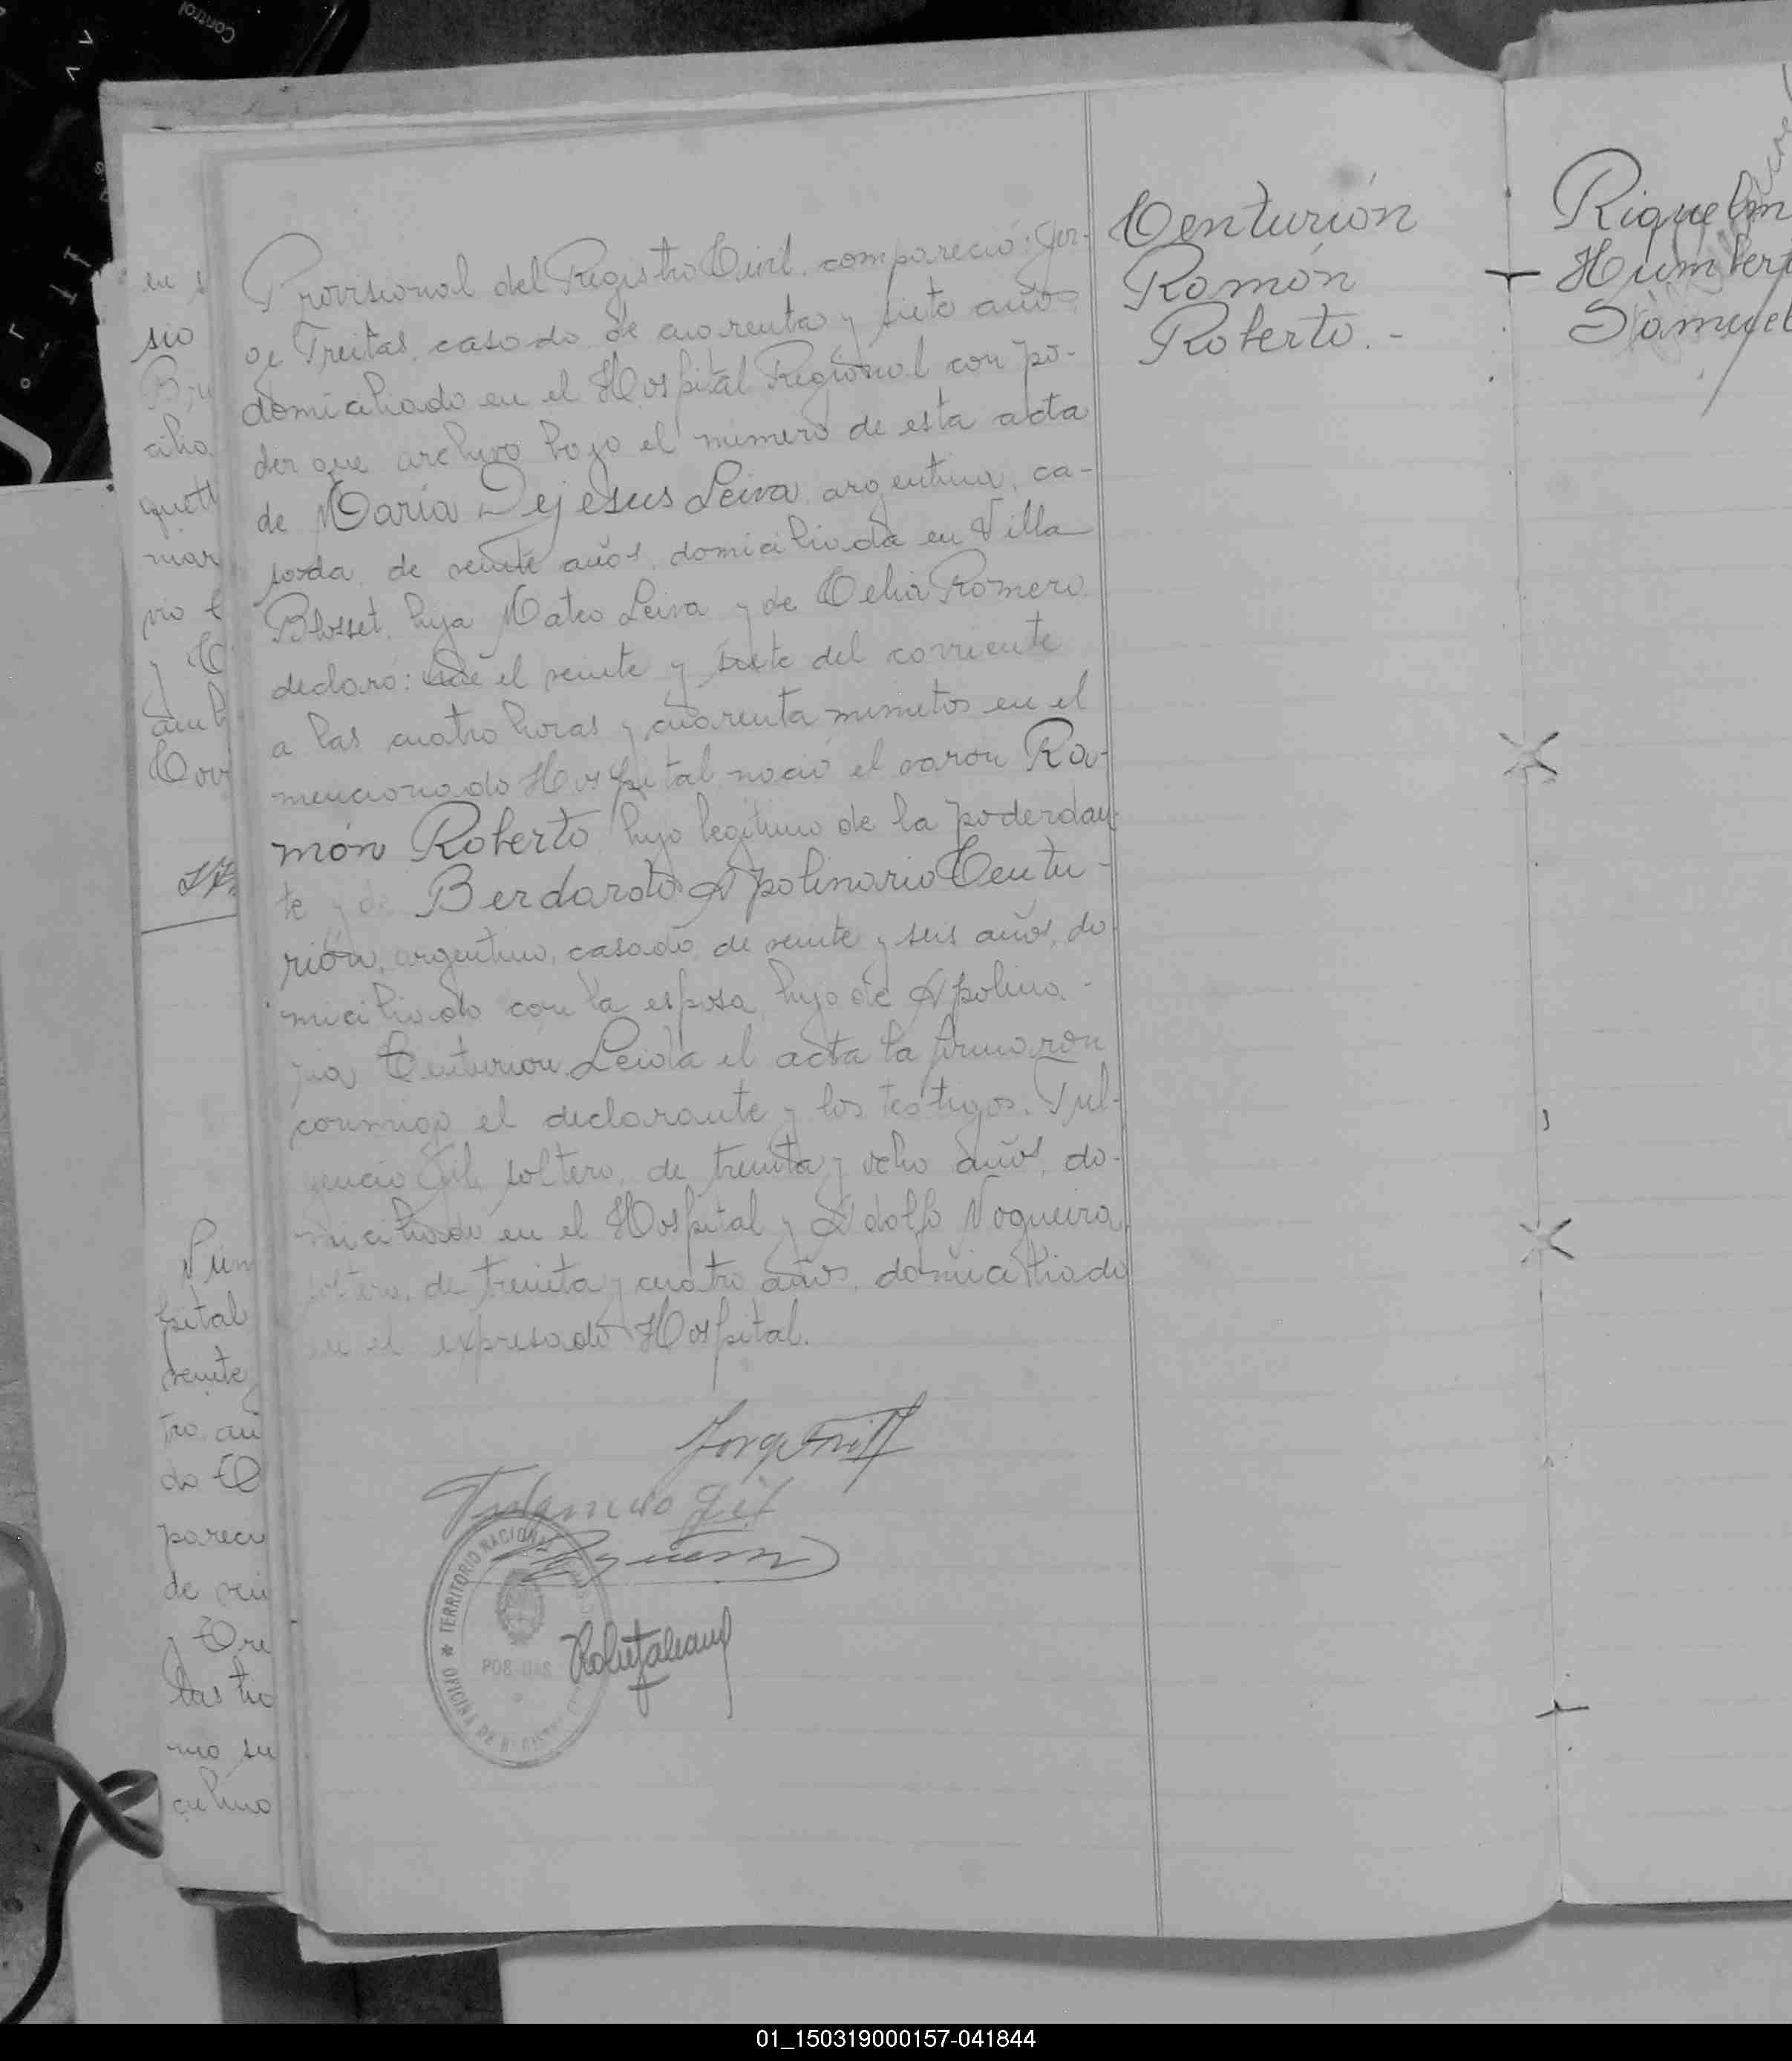 Provisional del Registro Civil, compareció: Jor-
ge Freitas, casado de cuarenta y siete años,
domiciliado en el Hospital Regional con po-
der que archivo bajo el número de esta acta
de María Dejesus Leiva, argentina, ca-
sada, de veinte años, domiciliada en Villa
Blosset, hija Mateo Leiva y de Celia Romero
declaró: Que el veinte y siete del corriente
a las cuatro horas y cuarenta minutos en el
mencionado Hospital nació el varón Ra-
món Roberto hijo legítimo de la poderdan-
te y de Berdardo Apolinario Centu-
rión, argentino, casado de veinte y seis años, do-
miciliado con la esposa, hijo de Apolina-
ria Centurion. Leida el acta la firmaron
conmigo el declarante y los testigos. Ful-
gencio Gil, soltero, de treinta y ocho años, do-
miciliado en el Hospital y Adolfo Nogueira,
soltero, de treinta y cuatro años, domiciliado
en el expresado Hospital.
Fulgencio Gil
TERRITORIO NACIONAL
OFICINA DE
POSADAS
Centurión
Ramón
Roberto.-
Riquelm
Humbert
Samuel
en s
sio
cilio
mar
vio
y C
Núm
pital
veinte
tro, añ
do C
parecu
de vei
y Cre
las tr
mo su
culino
Control
01_150319000157-041844